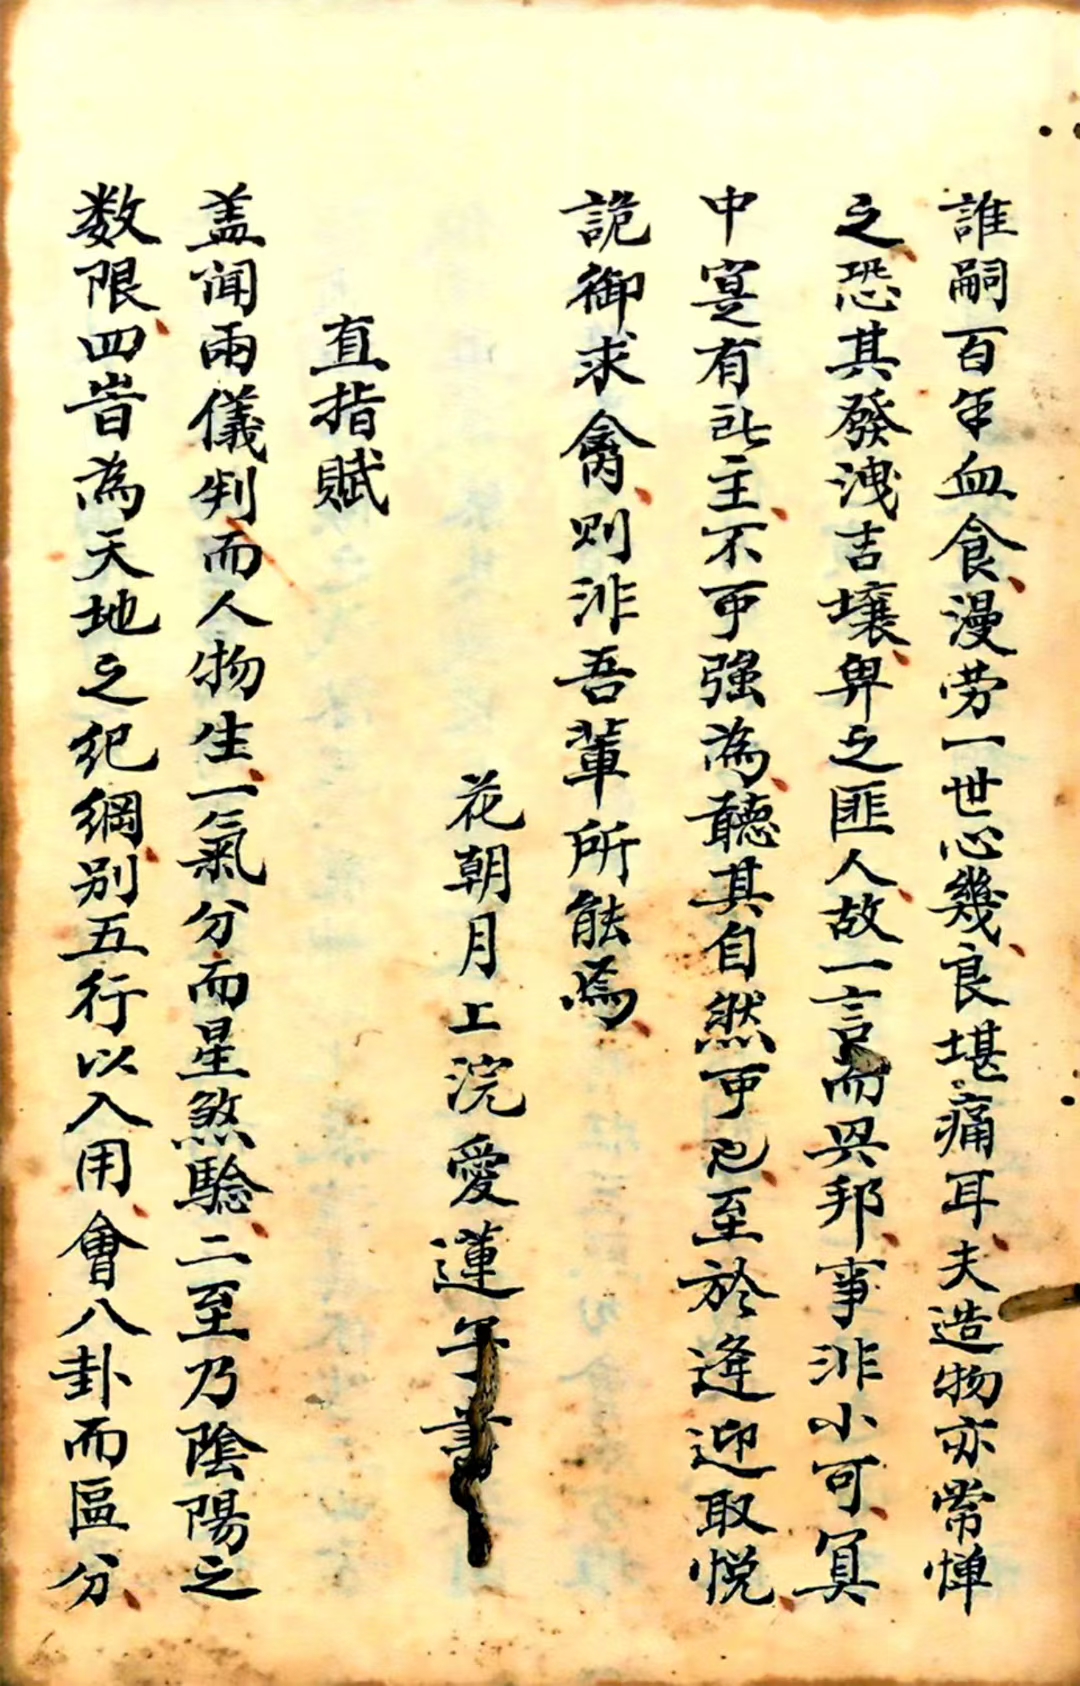 誰嗣百年血食漫劳一世心幾良堪痛耳夫造物亦常惮
之恐其發洩吉壤卑之匪人故一言而兴邦事非小可冥
中寔有此主不可强為聽其自然可已至於逢迎取悦
詭御求禽则非吾輩所能焉
花朝月上浣愛蓮子書
直指賦
盖闻兩儀判而人物生一氣分而星煞驗二至乃陰陽之
数限四旹為天地之纪綱别五行以入用會八卦而區分